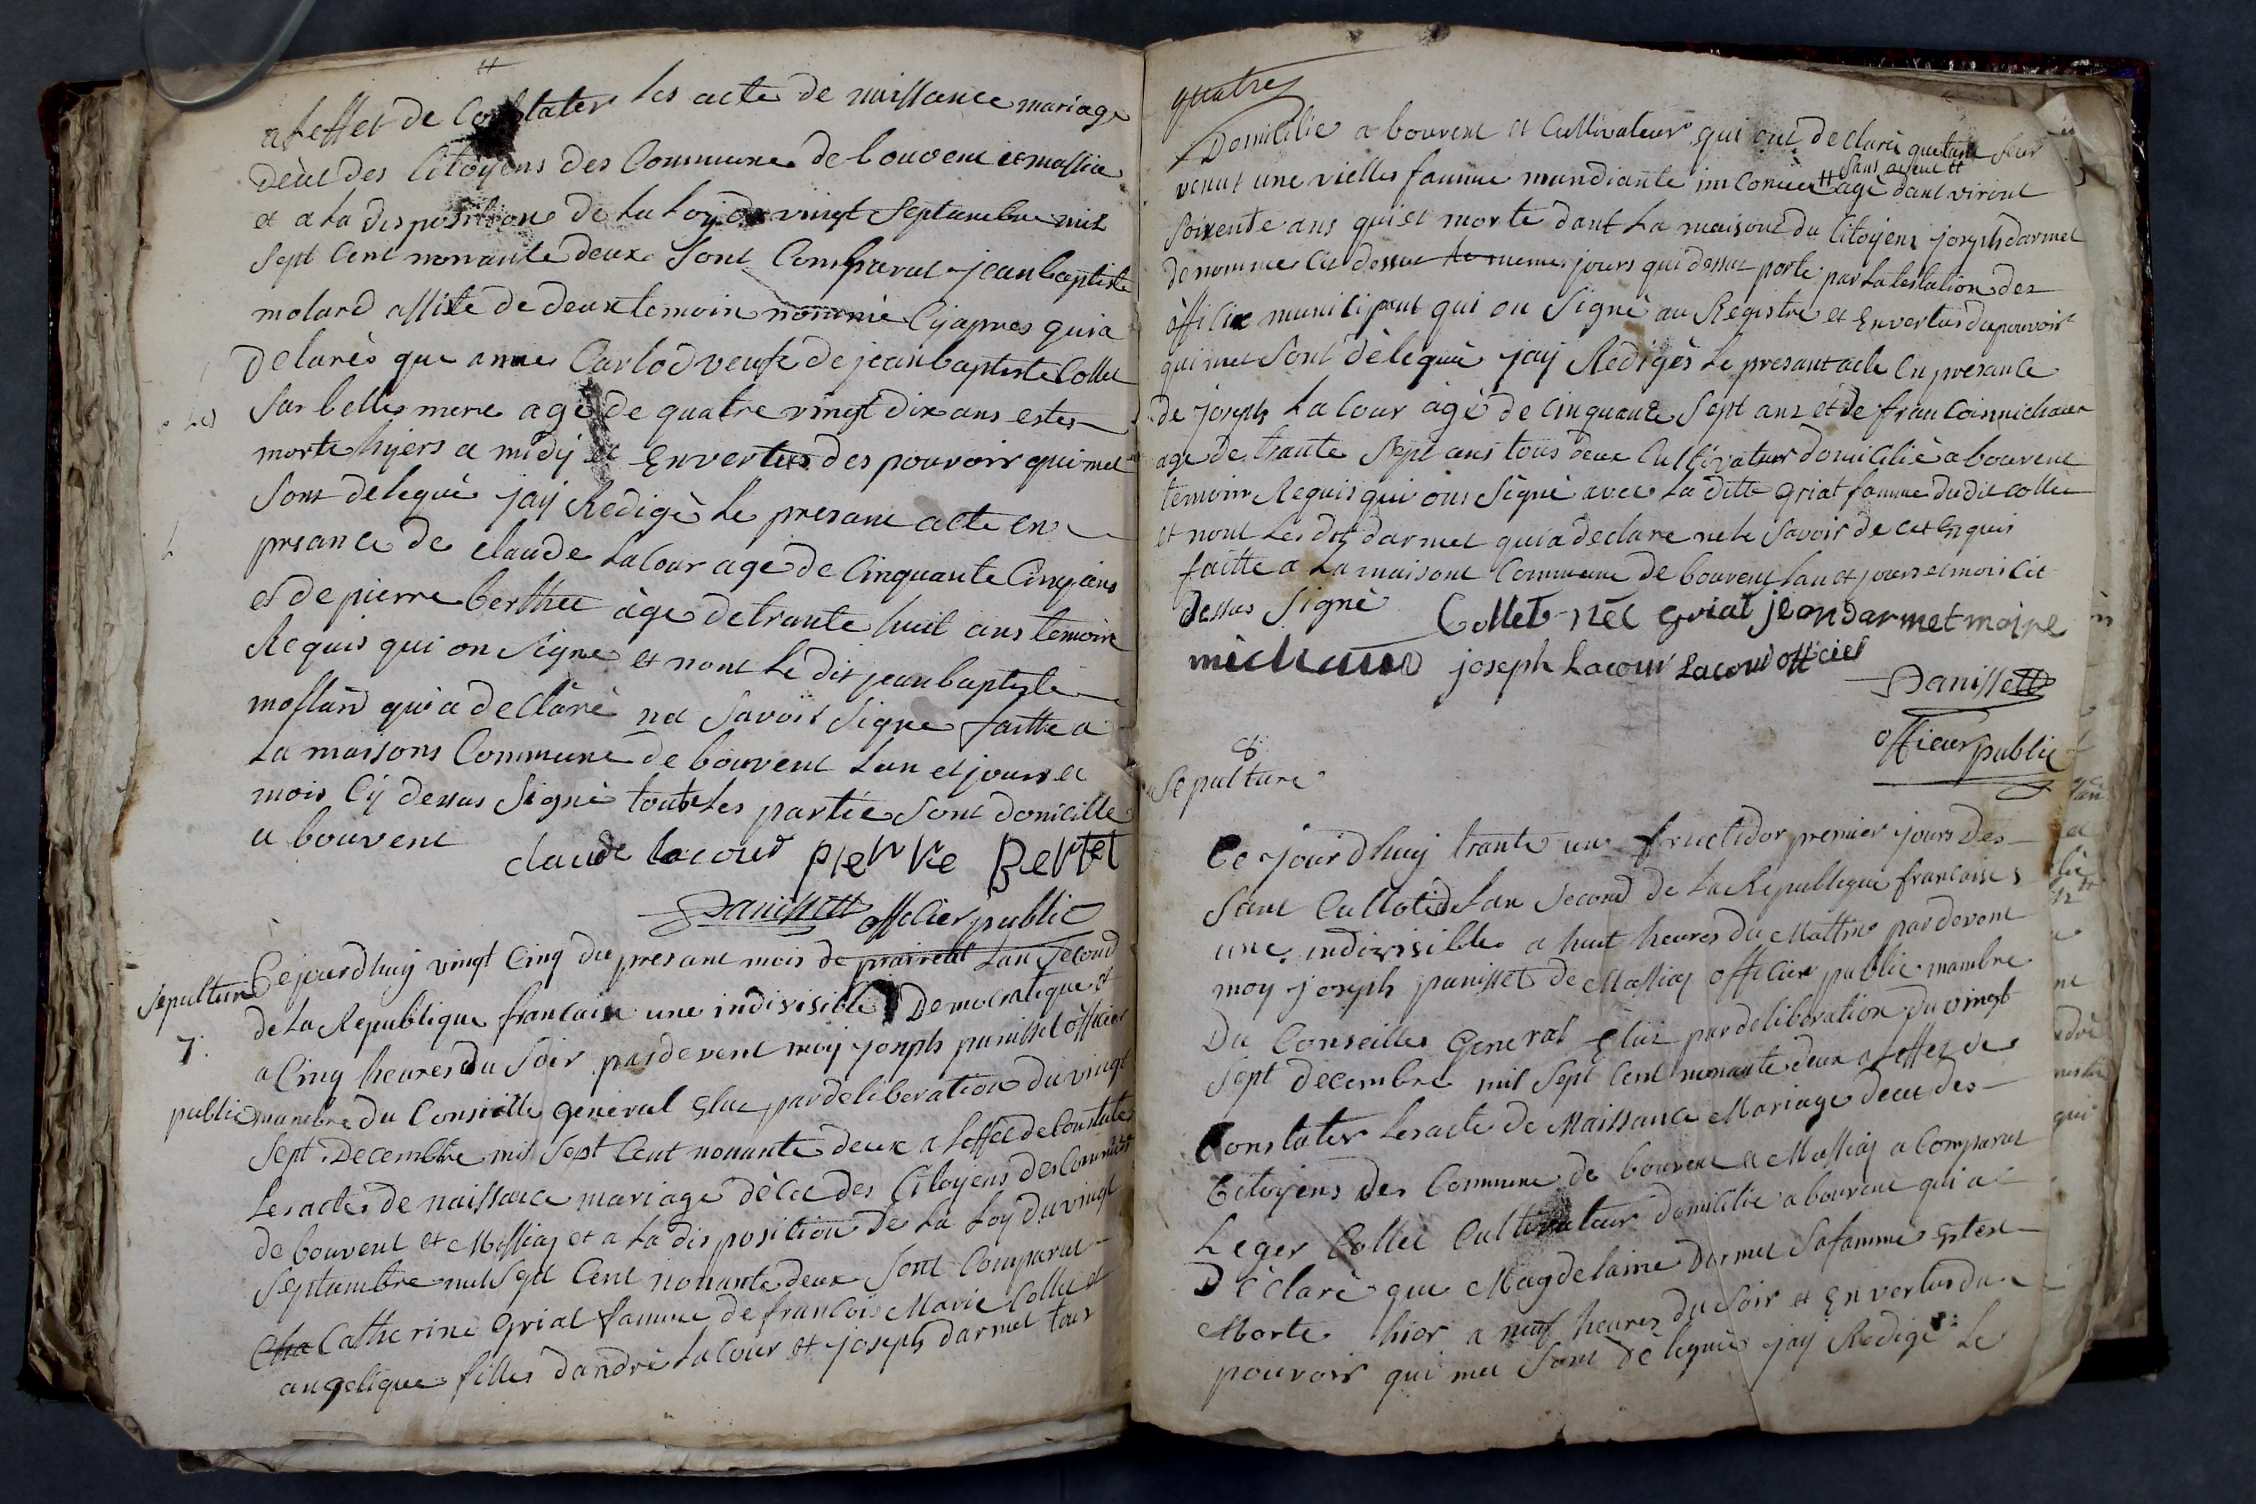 a Leffet de Constater les acte de naissance mariage
Deces des Citoyens des Commune de bouvent et massia
et a La disposition de La Loy du vingt Septambre mil
Sept Cent nonante deux Sont Comparut jean baptiste
molard assite de deux temoin nommé Cy apres qui a
Delaré que anne Carlod veufe de jean baptiste Collet
Sas belles mere agé de quatre vingt dix ans estes
morte hyers a midÿ et En vertus des pouvoir qui met
Sont delequé jaÿ Redigé Le presant acte en
presance de claude La Cour age de Cinquante Cinq ans
et de pierre berthet âge de trante huit ans temoin
Requis qui on Signe et nont Le dit jean baptiste
mollard qui a declaré net Savoir Signe faitte a
La maisons Commune de bouvent Lan et jours et
mois Cÿ dessus Signé toutes Les partie Sont domicille
a bouvent
claude lacour pierre Bertet
Panisset officier public
Sepulture
7.
Cejourdhuÿ vingt Cinq du presant mois de prairial Lan Second
de La Republique francaise une indivisible Democratique et
a Cinq heures du Soir pardevent moÿ joseph panisset officier
public mambre du Conseille general Elue par deliberation du vingt
Sept Decembre mil Sept Cent nonante deux a Leffet de Constate
Les actes de naissance mariage décet des Citoÿens des Commune
de bouvent et Massiaz et a La disposition de La Loÿ du vingt
Septambre mil Sept Cent nonante deux Sont Comparut
Cha Catherine Griat famme de francois Marie Collet et
angelique filles dandré La Cour et joseph darmet tous
quatre
Domicilie a bouvent et Cultivateur qui ont declaré quetant Sur
venut une vielles famme mandiante inconue # Sans aveue #
agé dant viront
Soixente ans qui et morte dant La maisont du Citoyens joseph darmet
denommee Cit dessue Le memes jours qui dessus porte par Latestation des
officie municipaut qui on Signé au Registre et En vertus du pouvoir
qui met Sont délequé jaÿ Redigés Le presant acte En presance
de joseph La Cour âgé de Cinquante Sept ans et de francois michaux
age de trante Sept ans tous deux Cultivateur domicilié a bouvent
temoin Requis qui ons Signé avec La ditte Griat famme du dit Collet
et nont Les dit darmet qui a declare net Le Savoir de cet Enquis
faitte a La maisont Commune de bouvent Lan et jours et mois Cit
dessus Signé
Collet née Griat jean darmet maire
michaud joseph Lacour Lacour officier
Panissett
officier public
8
Sepulture
Ce jourdhuÿ trante un fructidor premier jours des
Sant Cullotide Lan Second de La Republique francaises
une indivisible a huit heures du Mattin pardevent
moy joseph panisset de Massiaz officier public mambre
Du Conseilles General Elui par deliberation du vingt
Sept decembre mil Sept Cent nonante deux a Leffet de
Constater Les acte de Naissance Mariage decet des
Citoyens Des Commune de bouvent et Massiaz a Comparut
Leger Collet Cultivateur domicilie a bouvent qui a
Déclaré que Magdelaine Darmet Sa famme Est
Morte hier a neuf heures du Soir et En vertus du
pouvoir qui met Sont délequé jaÿ Redigé Le